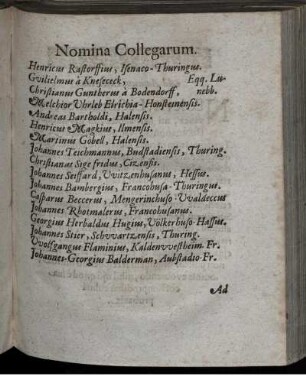 Nomina Collegarum.
Henricus Rustorffius, Isenaco-Thuringus.
Guilielmus à Knesebeck, Eqq. Lu-
Christianus Guntherus à Bodendorff, nebb.
Melchior Uhrleb Elrichia-Honsteinensis.
Andreas Bartholdi, Halensis.
Henricus Magkius, Ilmensis.
Martinus Göbell, Halensis.
Johannes Teichmannus, Budstadiensis, Thuring.
Christianus Sigefridus, Cizensis.
Johannes Seiffard, VVitzenhusanus, Hessus.
Johannes Bambergius, Francohusa-Thuringus.
Casparus Beccerus, Mengerinchuso-VValdeccus
Johannes Rhotmalerus, Francohusanus.
Georgius Herbaldus Hugius, Völkerhuso-Hassus.
Johannes Stier, Schvvartzensis, Thuring.
VVolfgangus Flaminius, Kaldenvvestheim. Fr.
Johannes-Georgius Balderman, Aubstadio-Fr.
Ad